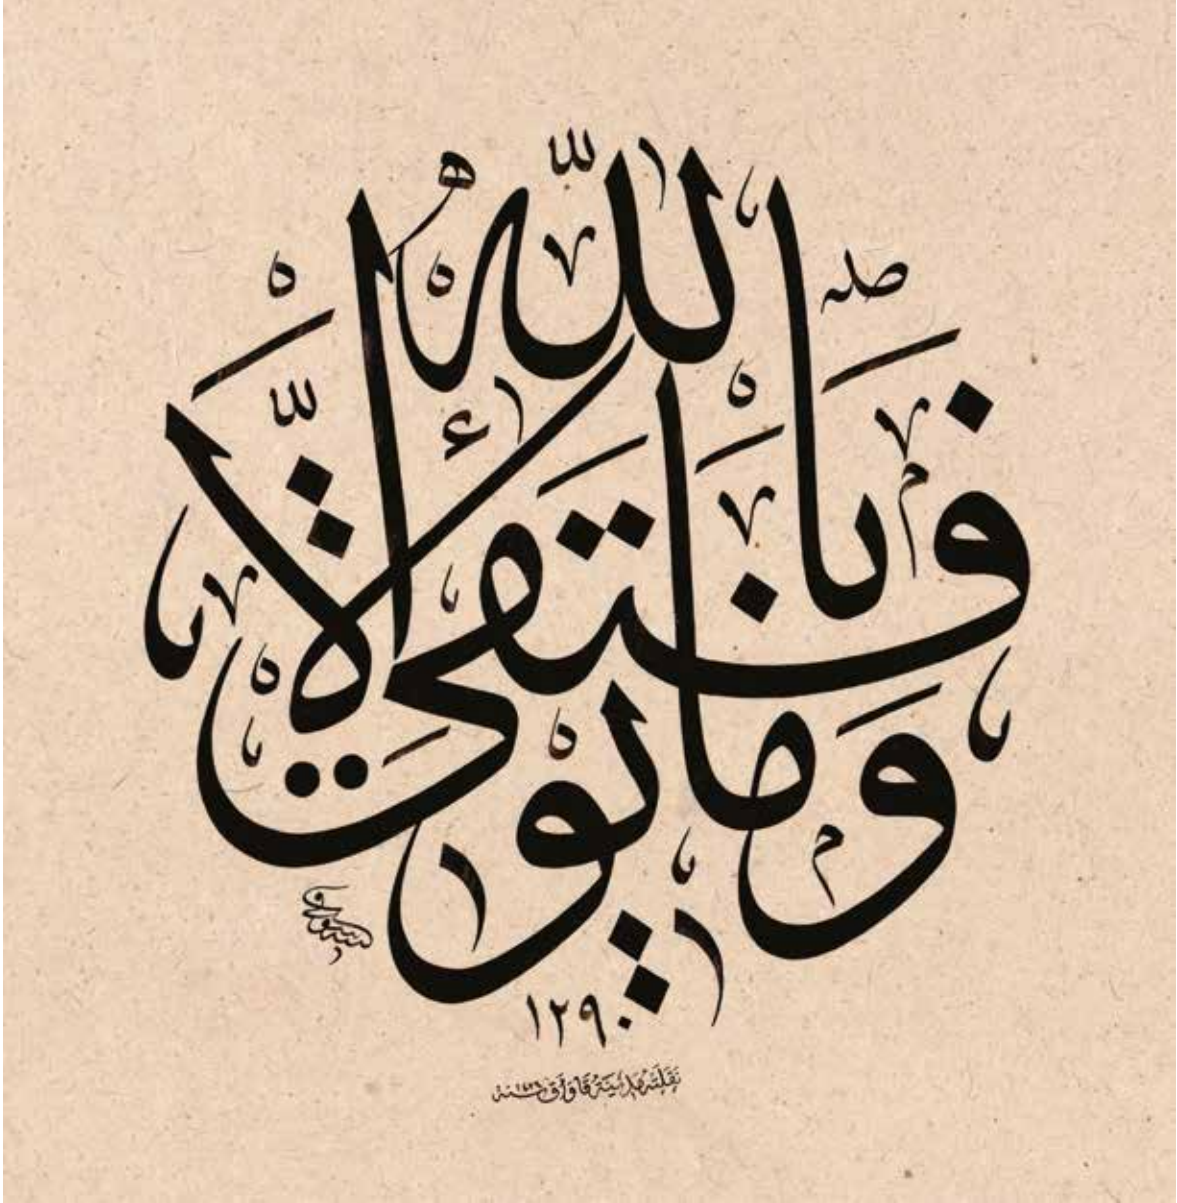 وَمَا تَوْفِيقِي إِلَّا بِاللّٰهِ
١٢٩٠